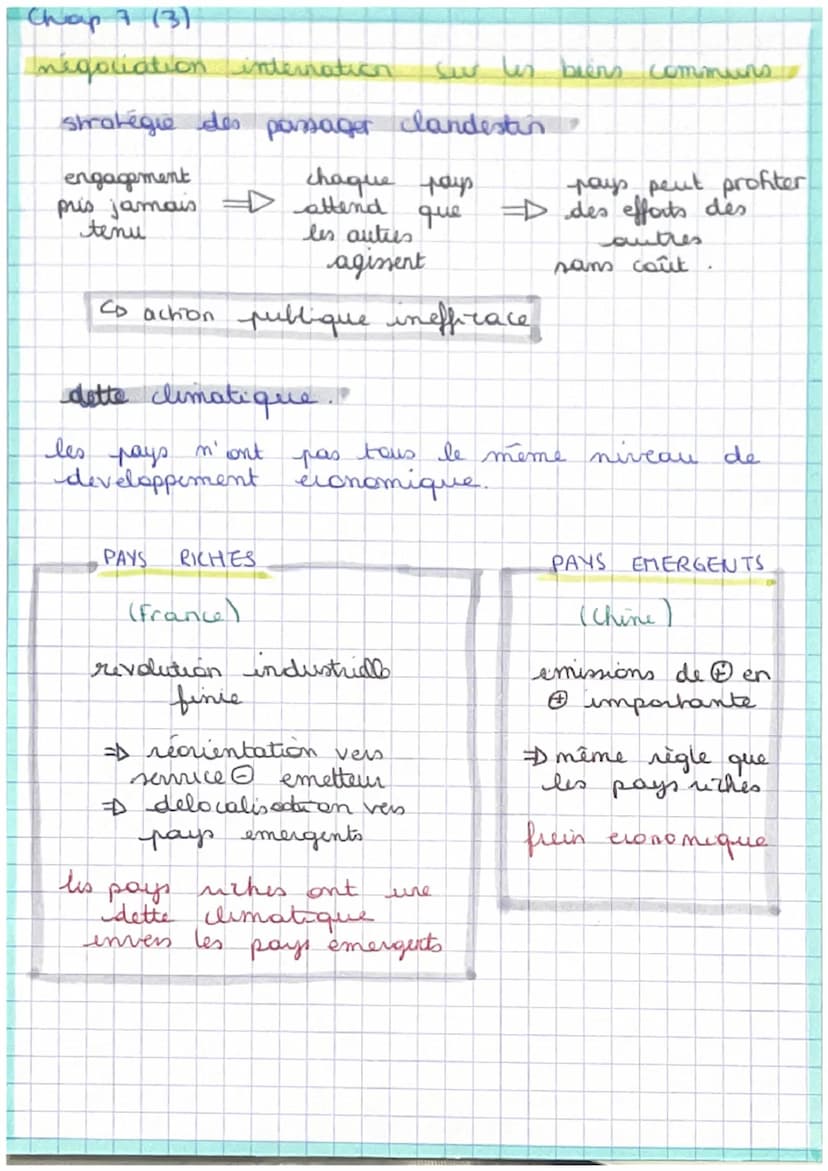 Chap 7 (3)
négociation internation sur les biens communs
stratégie des passager clandestin
engagement
pris jamais
tenu
=>
chaque pays
attend que
les autres
agissent
=>
pays peut profiter
des efforts des
autres
sans coût.
↳ action publique inefficace
dette climatique.
les pays n'ont pas tous le même niveau de
developpement économique.
PAYS RICHES
(France)
revolution industrielle
finie
=> réorientation vers
service ⊖ emetteur
=> délocalisation vers
pays emergents
les pays riches ont une
dette climatique
envers les pays émergents
PAYS EMERGENTS
(Chine)
emissions de ⊕ en
⊕ importante
=> même règle que
les pays riches
frein economique